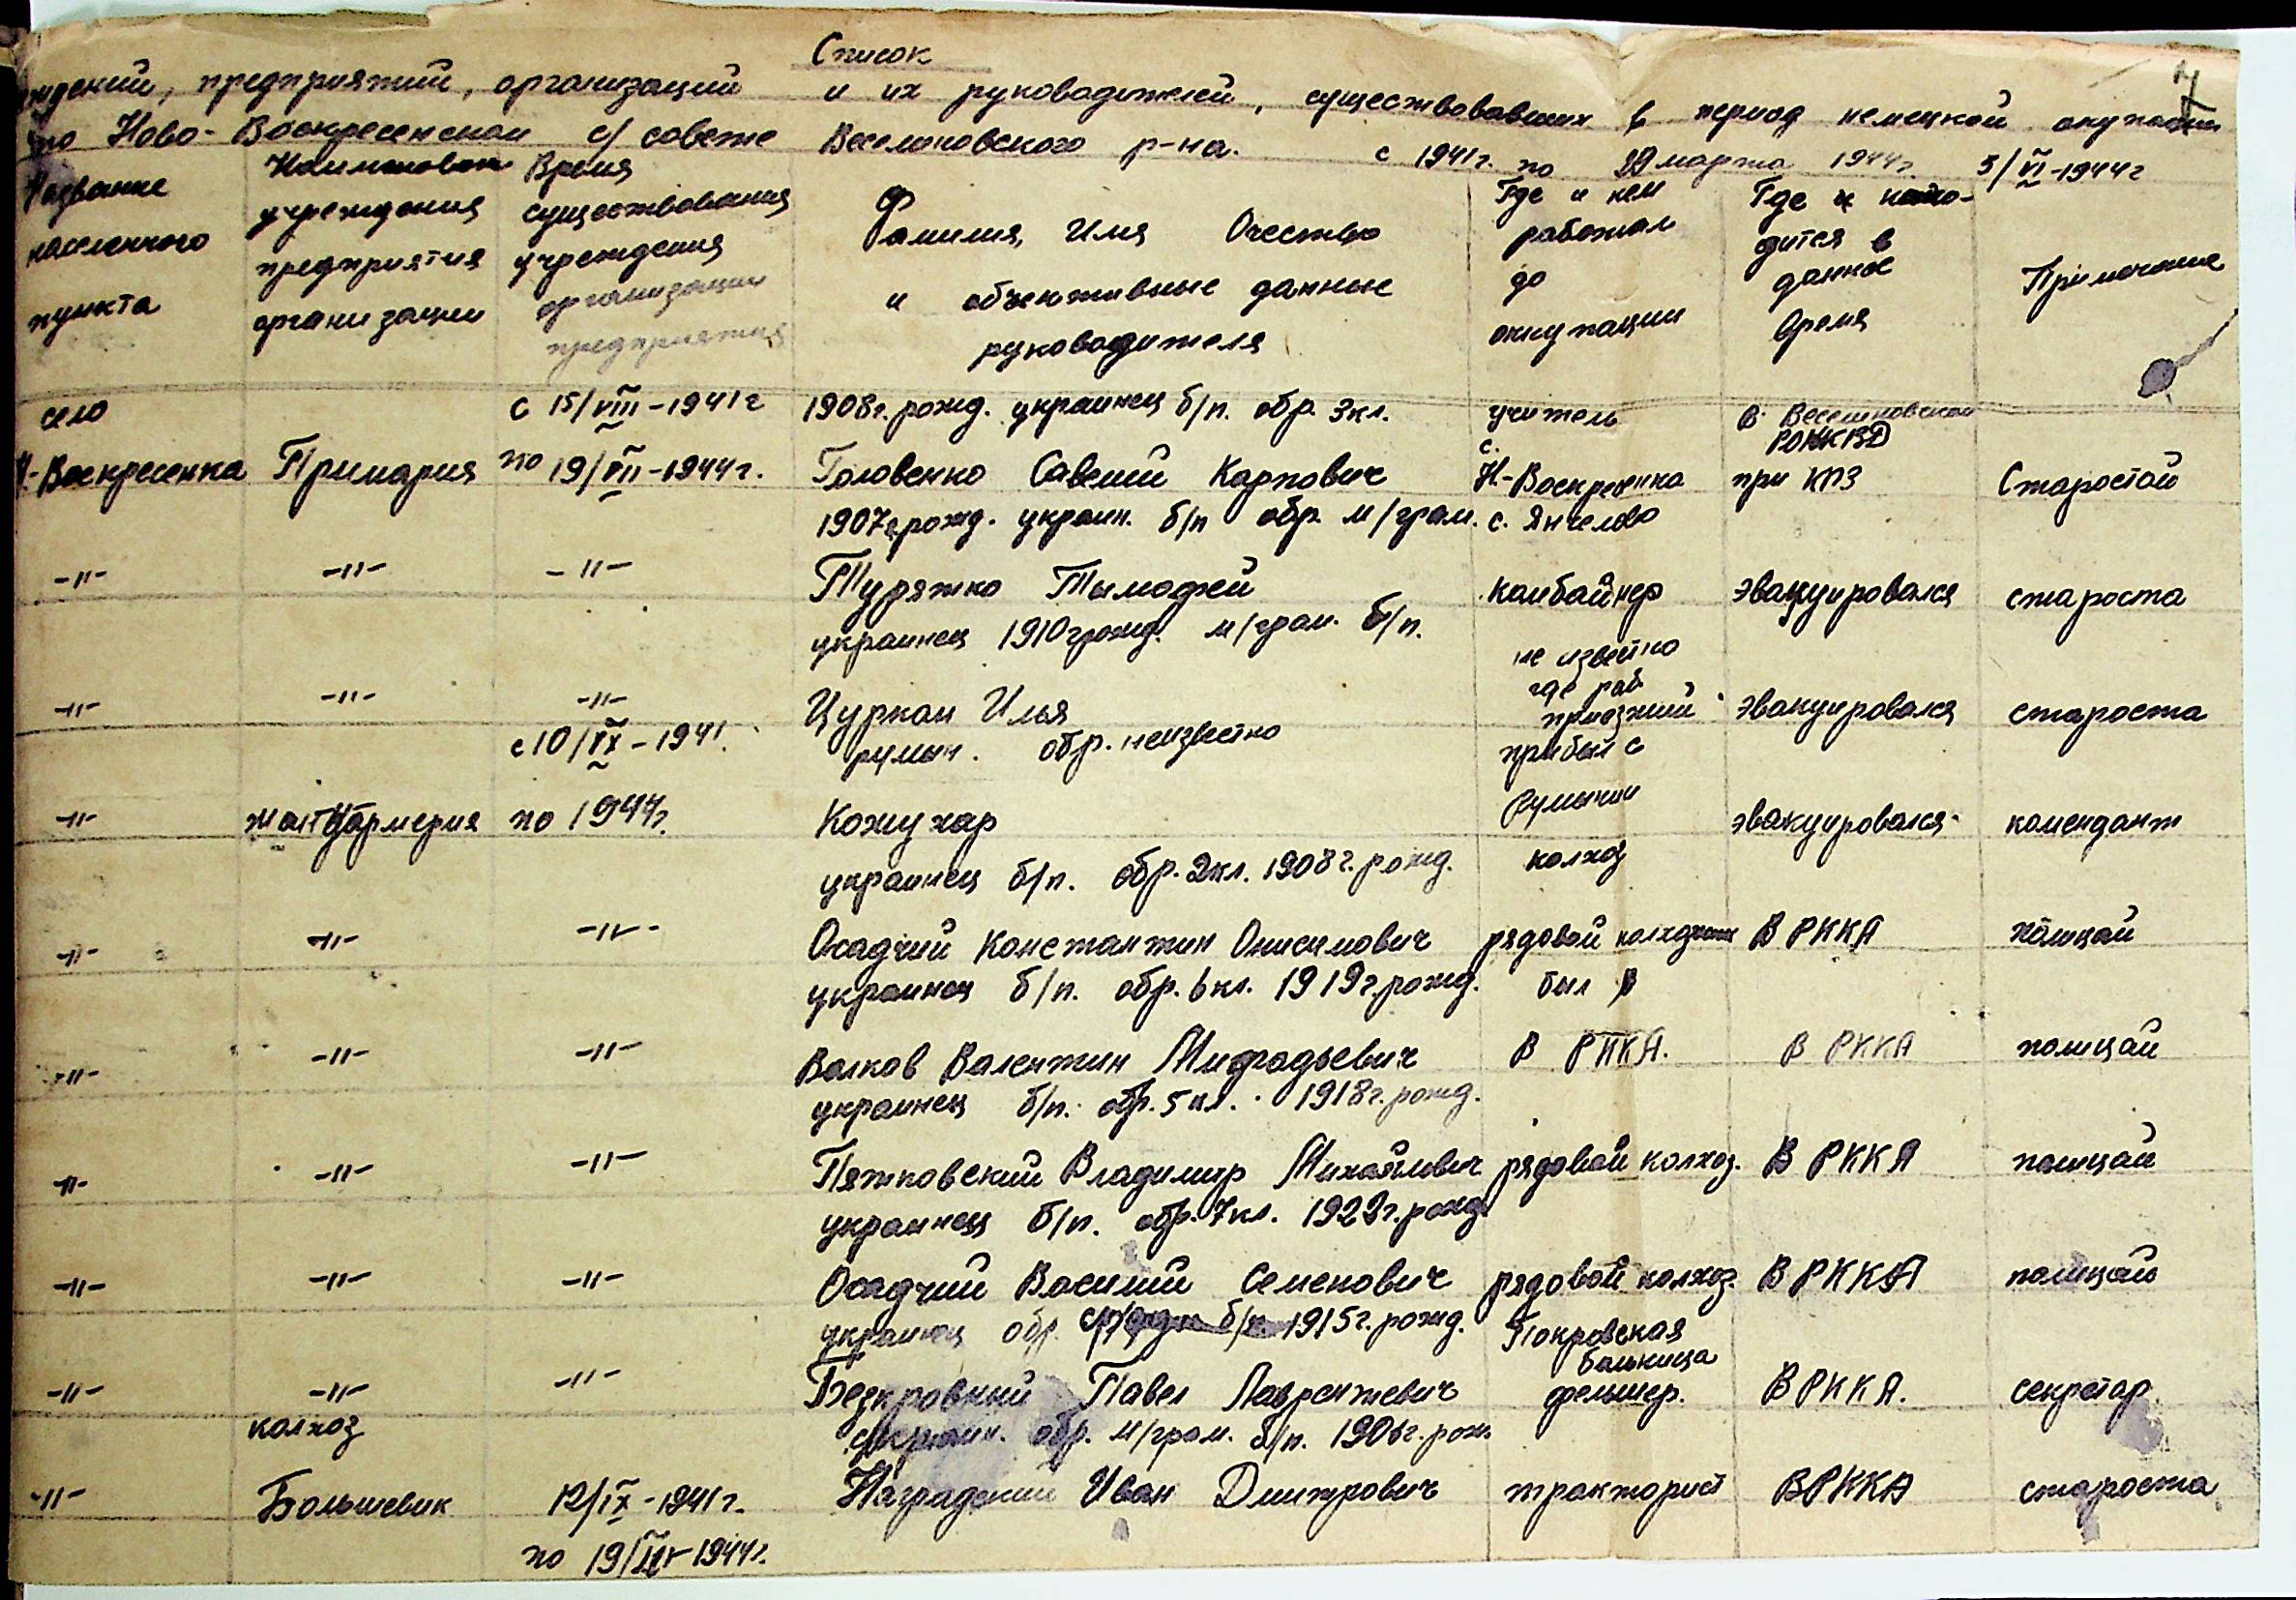 Список
ждений, предприятий, организаций и их руководителей, существовавших в период немецкой оккупации
по Ново-Воскресенском с/совете Веселиновского р-на. с 1941г. по 29 марта 1944г. 5/VI-1944г
Название населенного пункта
Наименован учреждения предприятия организации
Время существования учреждения организации предприятия
Фамилия, Имя Очество и объективные данные руководителя
Где и кем работал до оккупации
Где находится в данное время
Примечание
село Н.-Воскресенка Примария с 15/VIII-1941г по 19/III-1944г.
1908г. рожд. украинец б/п. обр. 3кл.
Головенко Савелий Карпович
учитель с. Н.-Воскресенка
в Веселиновском РОНКВД при КПЗ
Старостой
1907г.рожд. украин. б/п обр. м/грам.
-"- -"- -"- Туряжко Тымофей
с. Янчелово
комбайнер
эвакуировался
староста
украинец 1910г.рожд. м/грам. б/п.
-"- -"- -"- Цуркан Илья
не извесно где раб. приезжий
эвакуировался
староста
румын. обр. неизвестно
-"- жантдармерия с 10/IX-1941. по 1944г. Кожухар
прибыл с Румынии
эвакуировался
комендант
украинец б/п. обр. 2кл. 1908г. рожд.
-"- -"- -"- Осадчий Константин Онисимович
колхоз
рядовой колхозник
В РККА
полицай
украинец б/п. обр. 6кл. 1919г.рожд.
-"- -"- -"- Волков Валентин Мифодьевич
был в
В РККА.
В РККА
полицай
украинец б/п. обр. 5кл. 1918г. рожд.
-"- -"- -"- Пятковский Владимир Михайлович рядовой колхоз. В РККА полицай
украинец б/п. обр. 7кл. 1922г.рожд.
-"- -"- -"- Осадчий Василий Семенович рядовой колхоз. В РККА полицай
украинец обр. 1915г. рожд.
-"- -"- -"- Бедкровный Павел Лаврентьевич
Покровская больница фельшер.
В РККА.
секретар
украин. обр. м/грам. б/п. 1906г. рож.
-"- колхоз Большевик 12/IX-1941г. по 19/III-1944г.
Наградский Иван Дмитрович тракторист В РККА староста